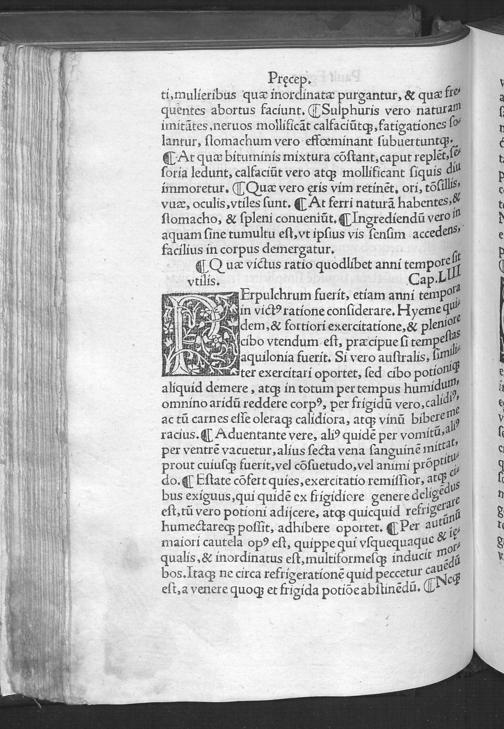 Pręcep.
ti, mulieribus quæ inordinatæ purgantur, & quæ fre
quentes abortus faciunt. ¶Sulphuris vero naturam
imitātes, neruos mollificāt calfaciūtqꝫ, fatigationes so-
lantur, stomachum vero effœminant subuertuntqꝫ.
¶At quæ bituminis mixtura cōstant, caput replēt, sē-
soria ledunt, calfaciūt vero atqꝫ mollificant siquis diu
immoretur. ¶Quæ vero ęris vim retinēt, ori, tōsillis,
vuæ, oculis, vtiles sunt. ¶At ferri naturā habentes, &
stomacho, & spleni conueniūt. ¶Ingrediendū vero in
aquam sine tumultu est, vt ipsius vis sensim accedens,
facilius in corpus demergatur.
¶Quæ victus ratio quodlibet anni tempore sit
vtilis. Cap. LIII
PErpulchrum fuerit, etiam anni tempora
in victꝰ ratione considerare. Hyeme qui-
dem, & fortiori exercitatione, & pleniore
cibo vtendum est, præcipue si tempestas
aquilonia fuerit. Si vero australis, simili-
ter exercitari oportet, sed cibo potioniqꝫ
aliquid demere, atqꝫ in totum per tempus humidum,
omnino aridū reddere corpꝰ, per frigidū vero, calidiꝰ,
ac tū carnes esse oleraqꝫ calidiora, atqꝫ vinū bibere me
racius. ¶Aduentante vere, aliꝰ quidē per vomitū, aliꝰ
per ventrē vacuetur, alius secta vena sanguinē mittat,
prout cuiusqꝫ fuerit, vel cōsuetudo, vel animi prōptitu-
do. ¶Estate cōfert quies, exercitatio remissior, atqꝫ ci-
bus exiguus, qui quidē ex frigidiore genere deligēdus
est, tū vero potioni adijcere, atqꝫ quicquid refrigerare
humectareqꝫ possit, adhibere oportet. ¶Per autūnū
maiori cautela opꝰ est, quippe qui vsquequaque & ię-
qualis, & inordinatus est, multiformesqꝫ inducit mor-
bos. Itaqꝫ ne circa refrigerationē quid peccetur cauēdū
est, a venere quoqꝫ et frigida potiōe abstinēdū. ¶Neqꝫ